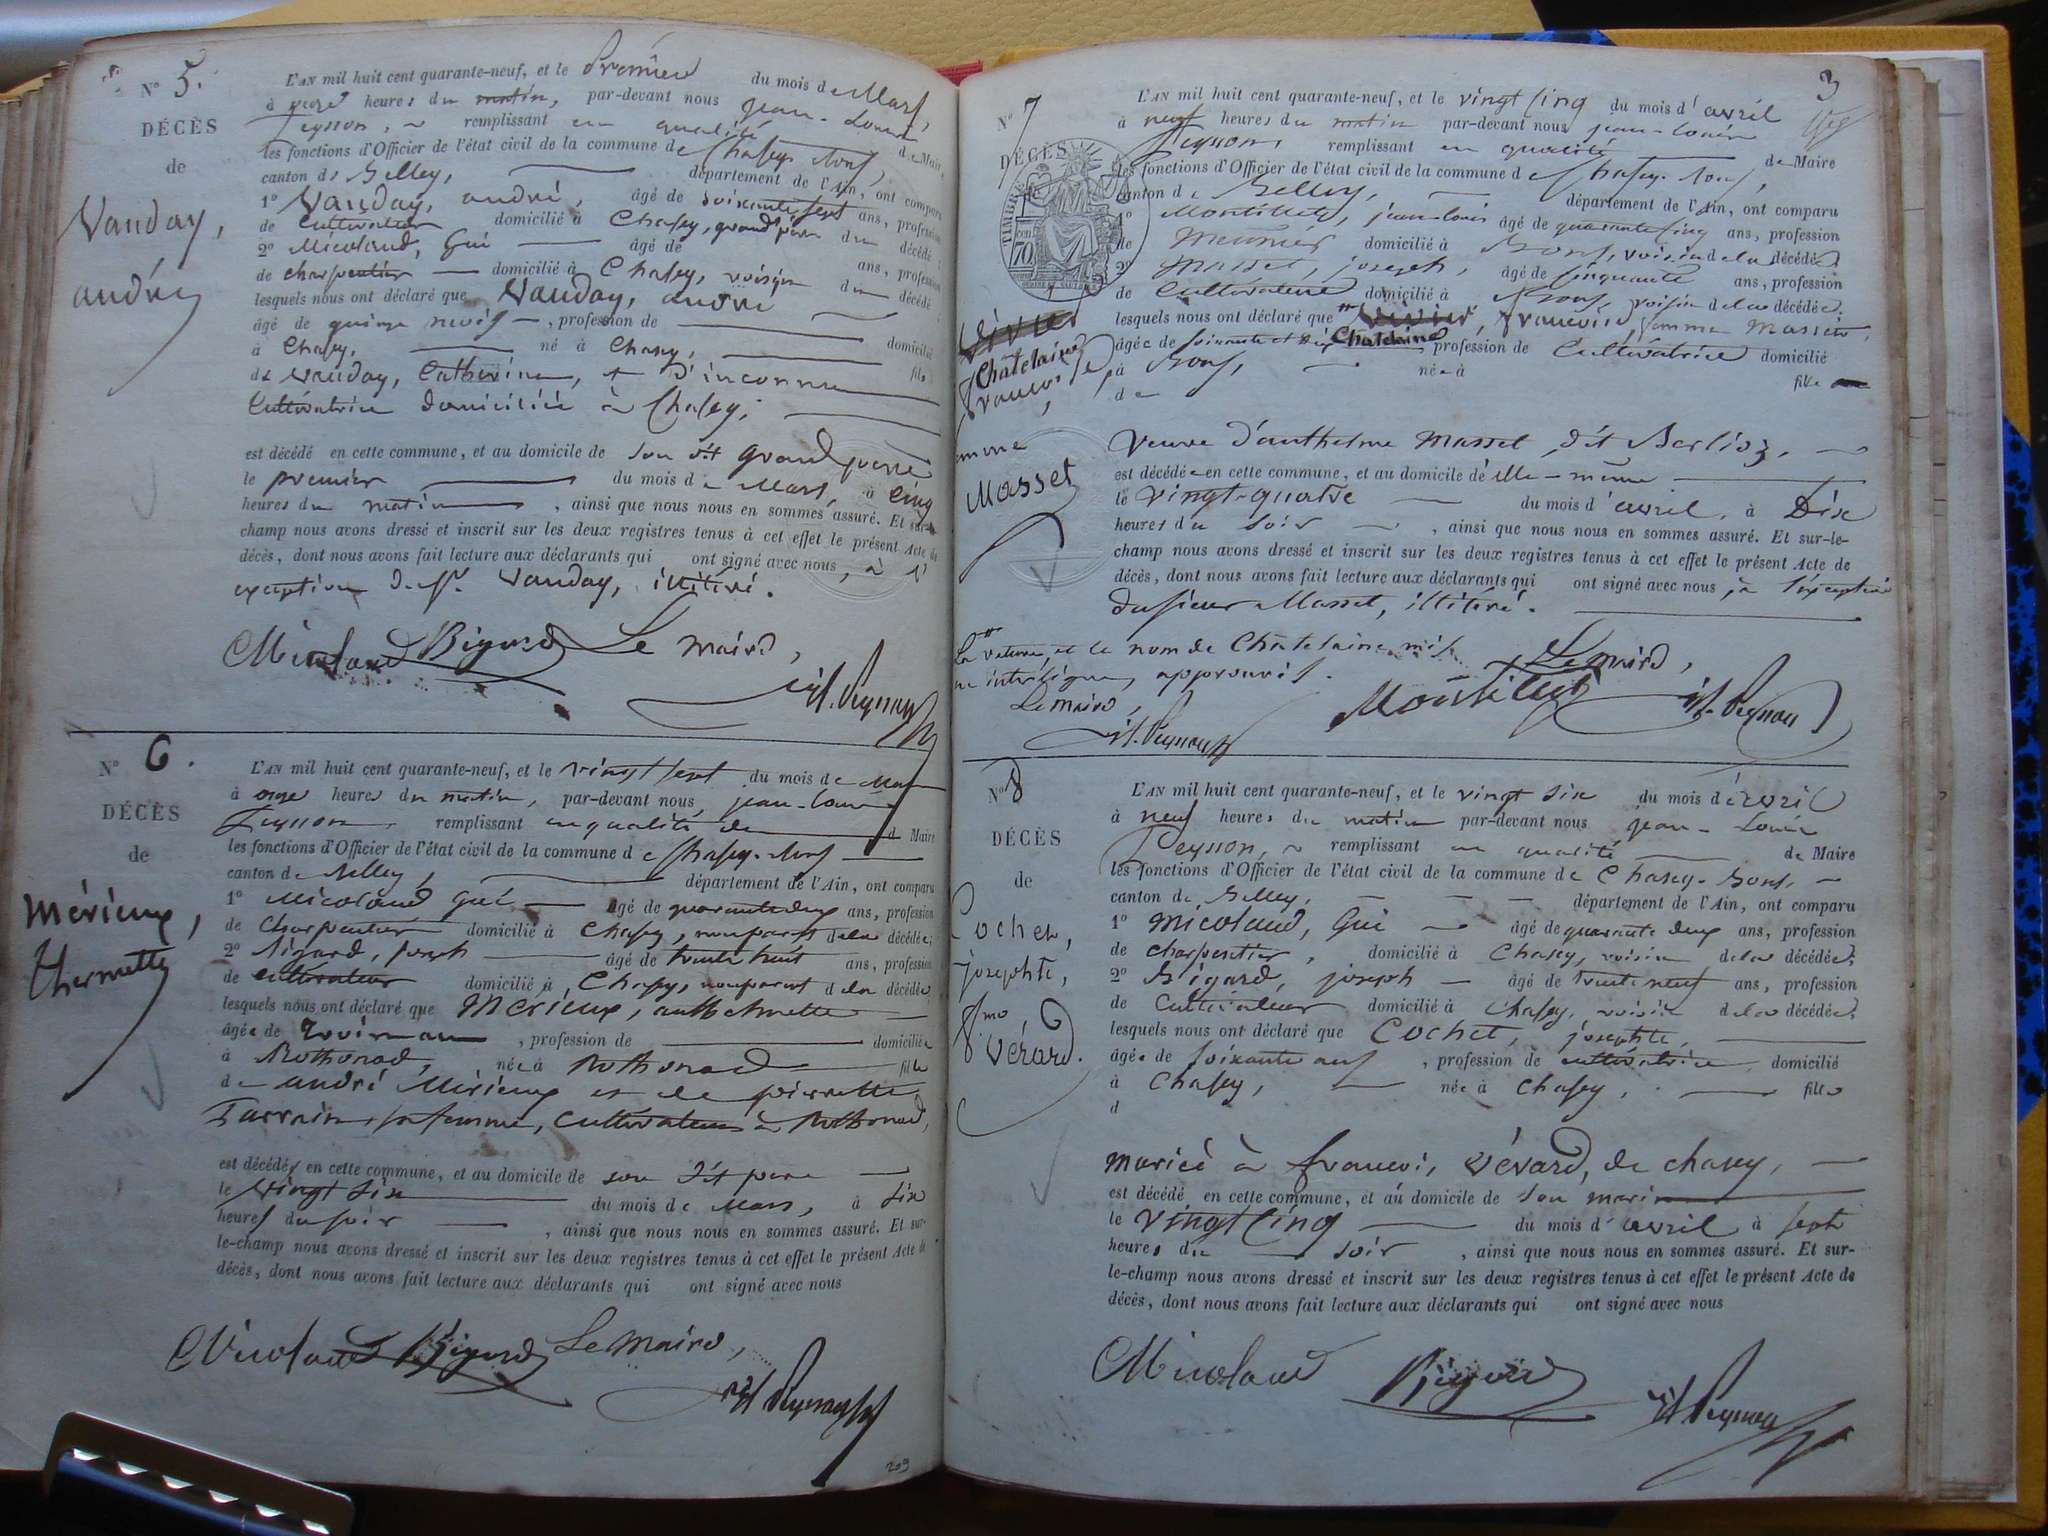 N° 5.
DÉCÈS
de
Vauday,
andré
L'AN mil huit cent quarante-neuf, et le Premier du mois de Mars,
à onze heures du matin, par-devant nous jean-Louis
Peysson, remplissant en qualité de Maire
les fonctions d'Officier de l'état civil de la commune de Chasey-Bons,
canton de Belley, département de l'Ain, ont comparu
1° Vauday, andré, âgé de soixante sept ans, profession
de Cultivateur domicilié à Chasey, grand père du décédé;
2° Micoland, Gui âgé de ans, profession
de charpentier domicilié à Chasey, voisin du décédé;
lesquels nous ont déclaré que Vauday, andré
âgé de quinze mois, profession de domicilié
à Chasey, né à Chasey, fils
de Vauday, Catherine, et d'inconnu
Cultivatrice domiciliée à Chasey,
est décédé en cette commune, et au domicile de son dit grand père
le premier du mois de Mars, à Cinq
heures du matin, ainsi que nous nous en sommes assuré. Et sur-le-
champ nous avons dressé et inscrit sur les deux registres tenus à cet effet le présent Acte de
décès, dont nous avons fait lecture aux déclarants qui ont signé avec nous, à l'
exception de Sr. Vauday, illitéré.
Micoland Bigard Le Maire,
jh. Peysson
N° 6.
DÉCÈS
de
Mérieux,
thermette
L'AN mil huit cent quarante-neuf, et le vingt sept du mois de Mars
à onze heures du matin, par-devant nous, jean-louis
Peysson, remplissant en qualité de de Maire
les fonctions d'Officier de l'état civil de la commune de Chasey-Bons
canton de Belley, département de l'Ain, ont comparu
1° Micoland Gui âgé de quarante deux ans, profession
de Charpentier domicilié à Chasey, non parent de la décédée;
2° Bigard, joseph âgé de trente huit ans, profession
de cultivateur domicilié à Chasey, non parent de la décédée;
lesquels nous ont déclaré que Mérieux, anthelmette
âgée de trois ans, profession de domiciliée
à Rothonod, née à Rothonod fille
de andré Mérieux et de pierrette
Tarrain, sa femme, Cultivateurs à Rothonod,
est décédée en cette commune, et au domicile de son dit père
le vingt six du mois de Mars, à six
heures du soir, ainsi que nous nous en sommes assuré. Et sur-
le-champ nous avons dressé et inscrit sur les deux registres tenus à cet effet le présent Acte de
décès, dont nous avons fait lecture aux déclarants qui ont signé avec nous
Micoland Bigard Le Maire,
jh Peysson
209
3
N° 7
DÉCÈS
TIMBRE
70
Châtelaine
françoise
femme
Masset
L'AN mil huit cent quarante-neuf, et le vingt cinq du mois d'avril
à neuf heures du matin par-devant nous jean-louis
Peysson, remplissant en qualité de Maire
les fonctions d'Officier de l'état civil de la commune de Chasey-Bons,
canton de Belley, département de l'Ain, ont comparu
1° Montillet, jean-louis âgé de quarante cinq ans, profession
de Meunier domicilié à Bons, voisin de la décédée;
2° Masset, joseph, âgé de cinquante ans, profession
de Cultivateur domicilié à Bons, voisin de la décédée.
lesquels nous ont déclaré que Vivier, françoise, femme Masset,
Chatelaine
âgée de soixante et dix profession de Cultivatrice domicilié
à Bons, née à fille
de
Veuve d'anthelme Masset dit Berlioz,
est décédée en cette commune, et au domicile d'elle-même
le vingt-quatre du mois d'avril, à Dix
heures du soir, ainsi que nous nous en sommes assuré. Et sur-le-
champ nous avons dressé et inscrit sur les deux registres tenus à cet effet le présent Acte de
décès, dont nous avons fait lecture aux déclarants qui ont signé avec nous, à l'exception
du sieur Masset, illitéré.
La rature et le nom de Châtelaine mis
en interligne, approuvés.
Le Maire,
jh. Peysson
Le Maire,
Montillet jh. Peysson
N° 8
DÉCÈS
de
Cochet,
josephte,
fme
f. Vérard.
L'AN mil huit cent quarante-neuf, et le vingt six du mois d'avril
à neuf heures du matin par-devant nous jean-Louis
Peysson, remplissant en qualité de Maire
les fonctions d'Officier de l'état civil de la commune de Chasey-Bons,
canton de Belley, département de l'Ain, ont comparu
1° Micoland, Gui âgé de quarante deux ans, profession
de charpentier, domicilié à Chasey, voisin de la décédée;
2° Bigard, joseph âgé de trente neuf ans, profession
de Cultivateur domicilié à Chasey, voisin de la décédée;
lesquels nous ont déclaré que Cochet, josephte,
âgée de soixante ans, profession de cultivatrice domicilié
à Chasey, née à Chasey, fille
d
mariée à françois Vérard, de chasey,
est décédé en cette commune, et au domicile de son mari
le vingt cinq du mois d'avril à sept
heures du soir, ainsi que nous nous en sommes assuré. Et sur-
le-champ nous avons dressé et inscrit sur les deux registres tenus à cet effet le présent Acte de
décès, dont nous avons fait lecture aux déclarants qui ont signé avec nous
Micoland Bigard jh Peysson